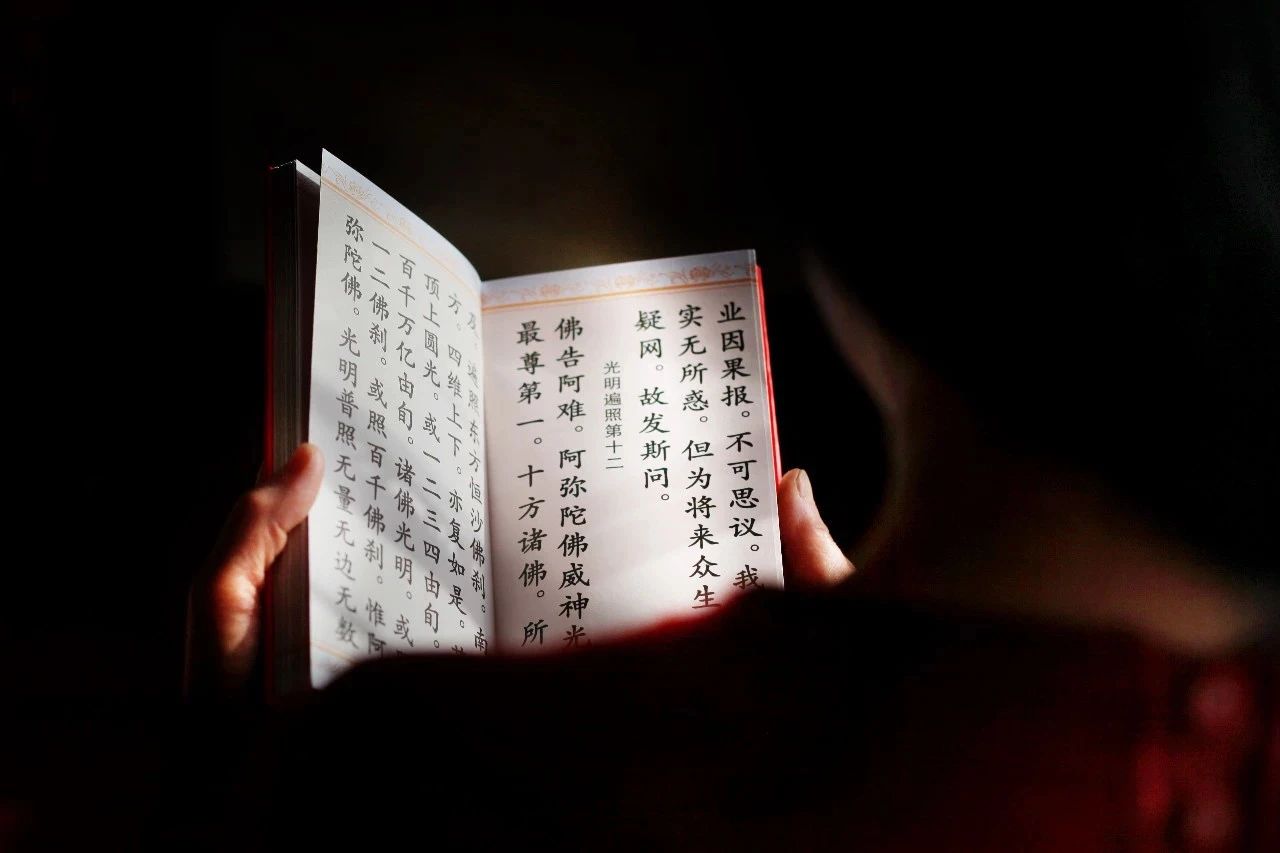 业因果报。不可思议。我
实无所惑。但为将来众生
疑网。故发斯问。
光明遍照第十二
佛告阿难。阿弥陀佛威神光
最尊第一。十方诸佛。所
及。遍照东方恒沙佛刹。南
方。四维上下。亦复如是。
顶上圆光。或一二三四由旬。
百千万亿由旬。诸佛光明。或
一二佛刹。或照百千佛刹。惟阿
弥陀佛。光明普照无量无边无数